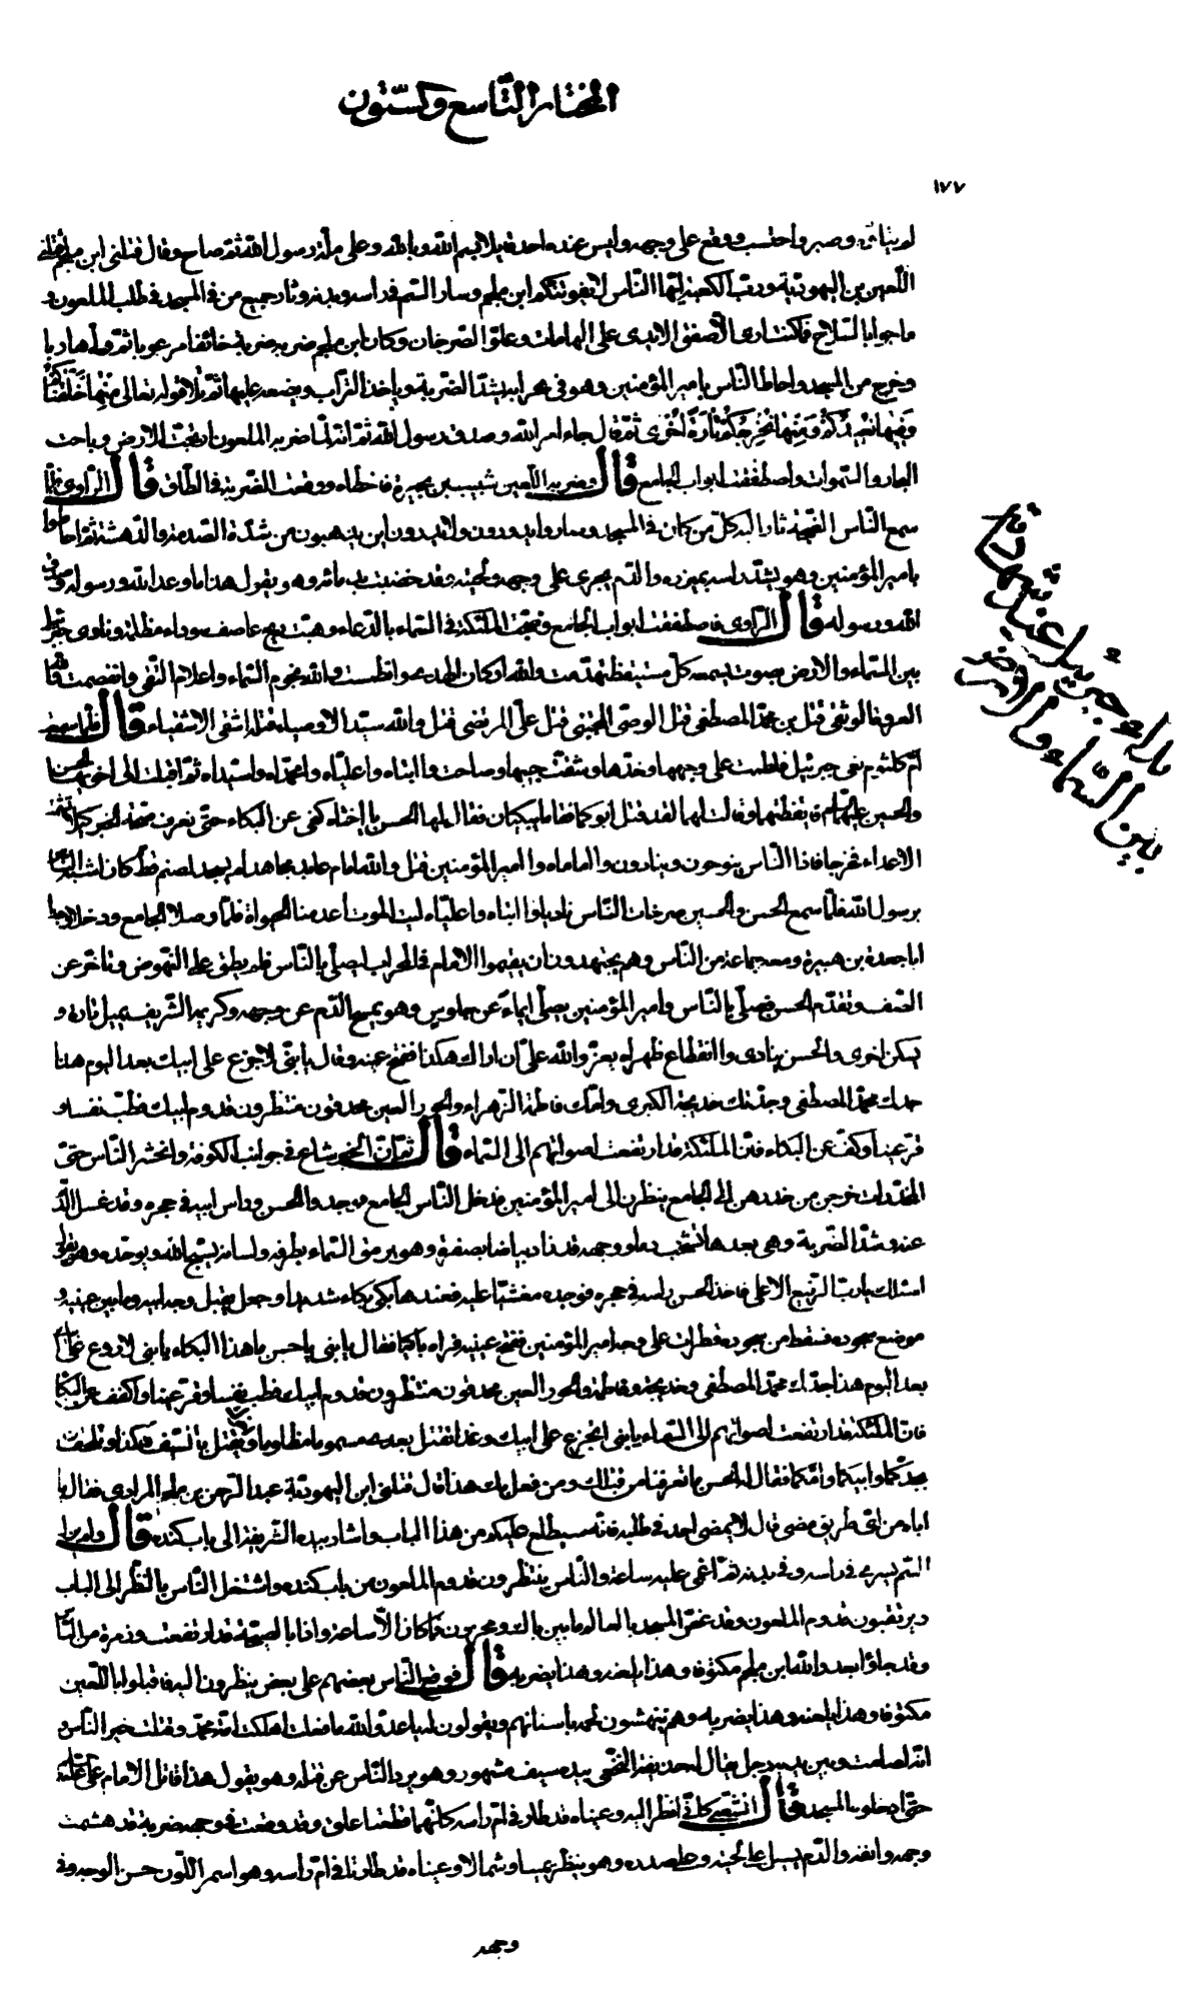 المختار التاسع والستون
١٧٧
لم يتأوه وصبر واحتسب ووقع على وجهه وليس عنده احد قايلا بسم الله وبالله وعلى ملة رسول الله ثم صاح وقال قتلنى ابن ملجم قتلنى
اللعين بن اليهودية ورب الكعبة ايها الناس لا يفوتنكم ابن ملجم وسار السم فى راسه وبدنه وثار جميع من فى المسجد فى طلب الملعون و
ماجوا بالسلاح فما كنت ارى الا صفق الايدى على الهامات وعلو الصرخات وكان ابن ملجم ضربه ضربة خائفا مرعوبا ثم ولى هاربا
وخرج من المسجد واحاط الناس بامير المؤمنين وهو فى محرابه يشد الضربة وياخذ التراب ويضعه عليها ثم تلا قوله تعالى منها خلقناكم
وفيها نعيدكم ومنها نخرجكم تارة اخرى ثم قال جاء امر الله وصدق رسول الله ثم انه لما ضربه الملعون ارتجت الارض وماجت
البحار والسموات واصطفقت ابواب الجامع قال وضربه اللعين شبيب بن بجيرة فاخطاه ووقعت الضربة فى الطاق قال الراوى فلما
سمع الناس الضجة ثار اليه كل من كان فى المسجد وصاروا يدورون ولا يدرون اين يذهبون من شدة الصدمة والدهشة ثم احاطوا
بامير المؤمنين وهو يشد راسه بميزره والدم يجرى على وجهه ولحيته وقد خضبت بدمائه وهو يقول هذا ما وعد الله ورسوله وصدق
الله ورسوله قال الراوى فاصطفقت ابواب الجامع وضجت الملئكة فى السماء بالدعاء وهبت ريح عاصف سوداء مظلمة ونادى جبرئيل
بين السماء والارض بصوت يسمعه كل مستيقظ تهدمت والله اركان الهدى وانطمست والله نجوم السماء واعلام التقى وانفصمت والله
العروة الوثقى قتل بن عم محمد المصطفى قتل الوصى المجتبى قتل على المرتضى قتل والله سيد الاوصياء قتله اشقى الاشقياء قال فلما سمعت
ام كلثوم نعى جبرئيل فلطمت على وجهها وخدها وشقت جيبها وصاحت وا ابتاه واعلياه وامحمداه واسيداه ثم اقبلت الى اخويها الحسن
والحسين عليهما فايقظتهما وقالت لهما لقد قتل ابوكما فقاما يبكيان فقال لها الحسن يا اختاه كفى عن البكاء حتى نعرف صحة الخبر كيلا تشمت
الاعداء فخرجا فاذا الناس ينوحون وينادون وا اماماه وا امير المؤمنيناه قتل والله امام عابد مجاهد لم يسجد لصنم قط كان اشبه الناس
برسول الله فلما سمع الحسن والحسين صرخات الناس ناديا وا ابتاه واعلياه ليت الموت اعدمنا الحيوة فلما وصلا الجامع ودخلا وجدا
ابا جعدة بن هبيرة ومعه جماعة من الناس وهم يجتهدون ان يقيموا الامام فى المحراب ليصلى بالناس فلم يطق على النهوض وتاخر عن
الصف وتقدم الحسن فصلى بالناس وامير المؤمنين يصلى ايماء عن جلوس وهو يمسح الدم عن وجهه وكريمه الشريف يميل تارة و
يسكن اخرى والحسن ينادى وا انقطاع ظهراه يعز والله على ان اراك هكذا ففتح عينه وقال يا بنى لا جزع على ابيك بعد اليوم هذا
جدك محمد المصطفى وجدتك خديجة الكبرى وامك فاطمة الزهراء والحور العين محدقون منتظرون قدوم ابيك فطب نفسا و
قر عينا وكف عن البكاء فان الملئكة قد ارتفعت اصواتهم الى السماء قال ثم ان الخبر شاع فى جوانب الكوفة وانحشر الناس حتى
المخدرات خرجن من خدرهن الى الجامع ينظرن الى امير المؤمنين فدخل الناس الجامع فوجدوا الحسن وراس ابيه فى حجره وقد غسل الدم
عنه وشد الضربة وهى بعدها تشخب دما ووجهه قد زاد بياضا بصفرة وهو يرمق السماء بطرفه ولسانه يسبح الله ويوحده وهو يقول
اسئلك يا رب الرفيع الاعلى فاخذ الحسن راسه فى حجره فوجده مغشيا عليه فعندها بكى بكاء شديدا وجعل يقبل وجه ابيه وما بين عينيه و
موضع سجوده فسقط من دموعه قطرات على وجه امير المؤمنين ففتح عينيه فراه باكيا فقال يا بنى يا حسن ما هذا البكاء يا بنى لا روع على ابيك
بعد اليوم هذا جدك محمد المصطفى وخديجة وفاطمة والحور العين محدقون منتظرون قدوم ابيك فطب نفسا وقر عينا واكفف عن البكاء
فان الملئكة قد ارتفعت اصواتهم الى السماء يا بنى اتجزع على ابيك وغدا تقتل بعدى مسموما مظلوما ويقتل اخوك بالسيف هكذا وتلحقان
بجدكما وابيكما وامكما فقال له الحسن ما تعرفنا من قتلك ومن فعل بك هذا قال قتلنى ابن اليهودية عبد الرحمن بن ملجم المرادى فقال يا
اباه من اى طريق مضى قال لا يمضى احد فى طلبه فانه سيطلع عليكم من هذا الباب واشار بيده الشريفة الى باب كندة قال ولم يزل
السم يسرى فى راسه وفى بدنه ثم اغمى عليه ساعة والناس ينتظرون قدوم الملعون من باب كندة واشتغل الناس بالنظر الى الباب
ويرتقبون قدوم الملعون وقد غص المسجد بالعالم ما بين باك ومحزون فما كان الا ساعة واذا بالصيحة قد ارتفعت وزمرة من الناس
وقد جاؤا بعدو الله ابن ملجم مكتوفا وهذا يلعنه وهذا يضربه قال فوقع الناس بعضهم على بعض ينظرون اليه فاقبلوا باللعين
مكتوفا وهذا يلعنه وهذا يضربه وهم ينهشون لحمه باسنانهم ويقولون له يا عدو الله ما فعلت اهلكت امة محمد وقتلت خير الناس
انه لصامت وبين يديه رجل يقال له حذيفة النخعى بيده سيف مشهور وهو يرد الناس عن قتله وهو يقول هذا قاتل الامام على
حتى ادخلوه المسجد قال الشعبى كانى انظر اليه وعيناه قد طارتا فى ام راسه كانهما قطعتا علق وقد وقعت فى وجهه ضربة قد هشمت
وجهه وانفه والدم يسيل على لحيته وعلى صدره وهو ينظر يمينا وشمالا وعيناه قد طارتا فى ام راسه وهو اسمر اللون حسن الوجه وفى
وجهه
نداء جبرئيل عند شهادته
بين السماء والارض